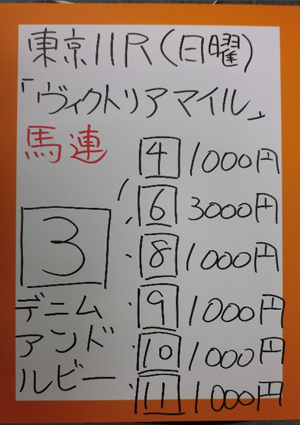 東京11R(日曜)
「ヴィクトリアマイル」
馬連
3
デニム
アンド
ルビー
4 1000円
6 3000円
8 1000円
9 1000円
10 1000円
11 1000円